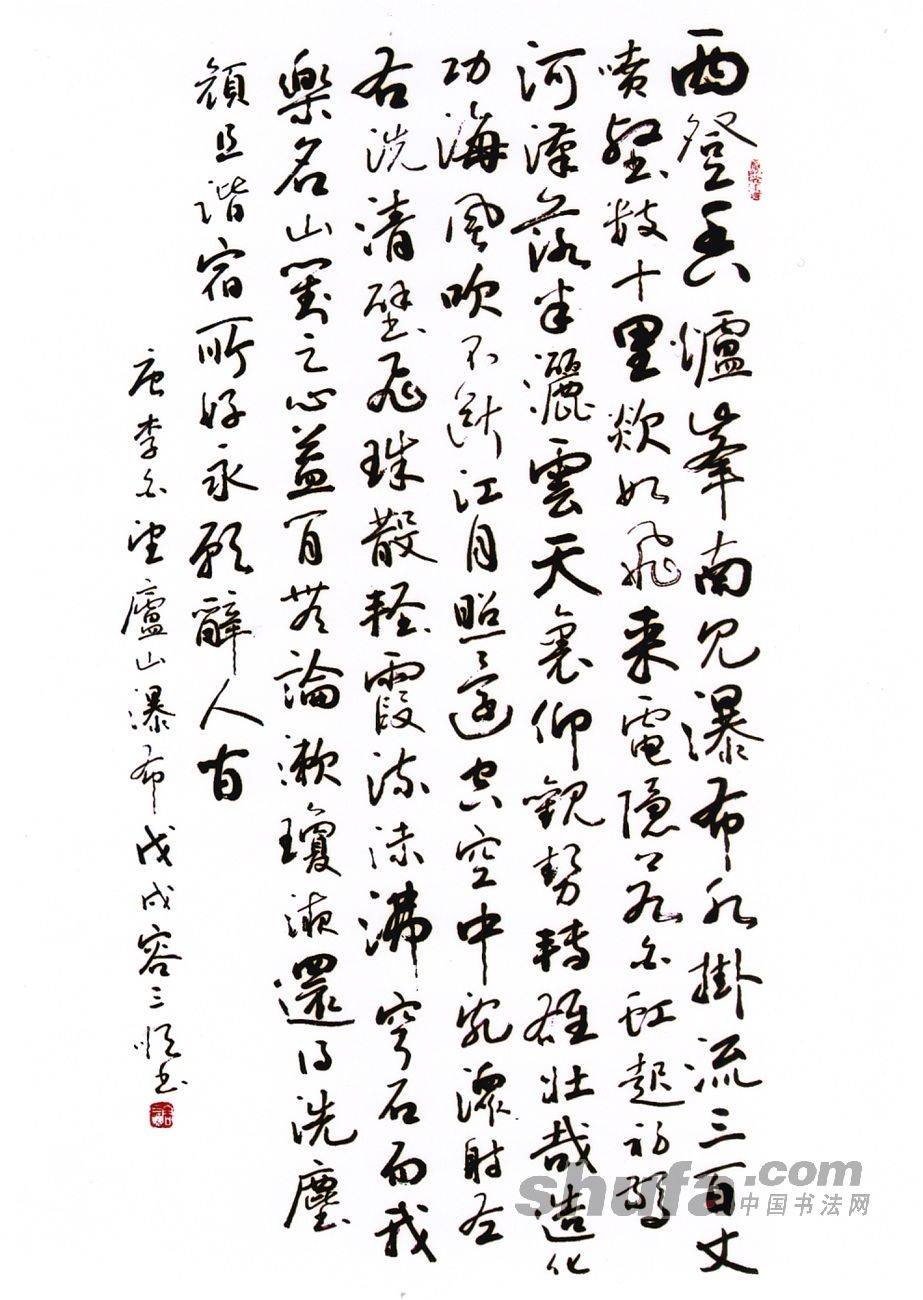 西登香爐峯南見瀑布水掛流三百丈
噴壑數十里欻如飛來電隱若白虹起初驚
河漢落半灑雲天裏仰觀勢轉雄壯哉造化
功海風吹不斷江月照還空空中亂潈射左
右洗清壁飛珠散輕霞流沫沸穹石而我
樂名山對之心益閒無論漱瓊液還得洗塵
顏且諧宿所好永願辭人間
唐李白望廬山瀑布戊戌容三书
shufa.com
中国书法网